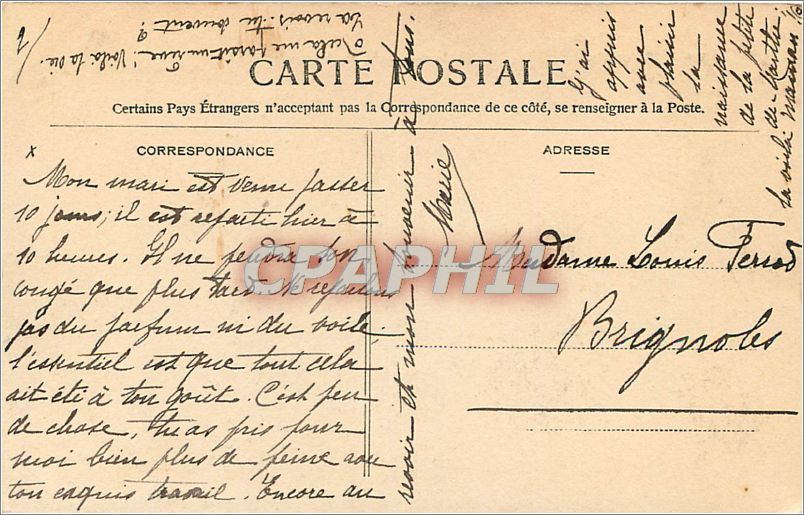 CARTE POSTALE
Certains Pays Étrangers n'acceptant pas la Correspondance de ce côté, se renseigner à la Poste.
CORRESPONDANCE
ADRESSE
x
Mon mari est venu passer
10 jours; il est reparti hier à
10 heures. Il ne prendra son
congé que plus tard. Ne reparlons
pas du parfum ni du voile,
l'essentiel est que tout cela
ait été à ton goût. C'est peu
de chose, tu as pris pour
moi bien plus de peine avec
ton exquis travail. Encore au
revoir et mon souvenir à tous.
Marie
Madame Louis Ferrod
Brignoles
J'ai
appris
avec
plaisir
la
naissance
de la petite
de Marthe:
la voilà maman
La revois-tu souvent?
Cela me paraît un rêve! Voilà la vie.
CPAPHIL